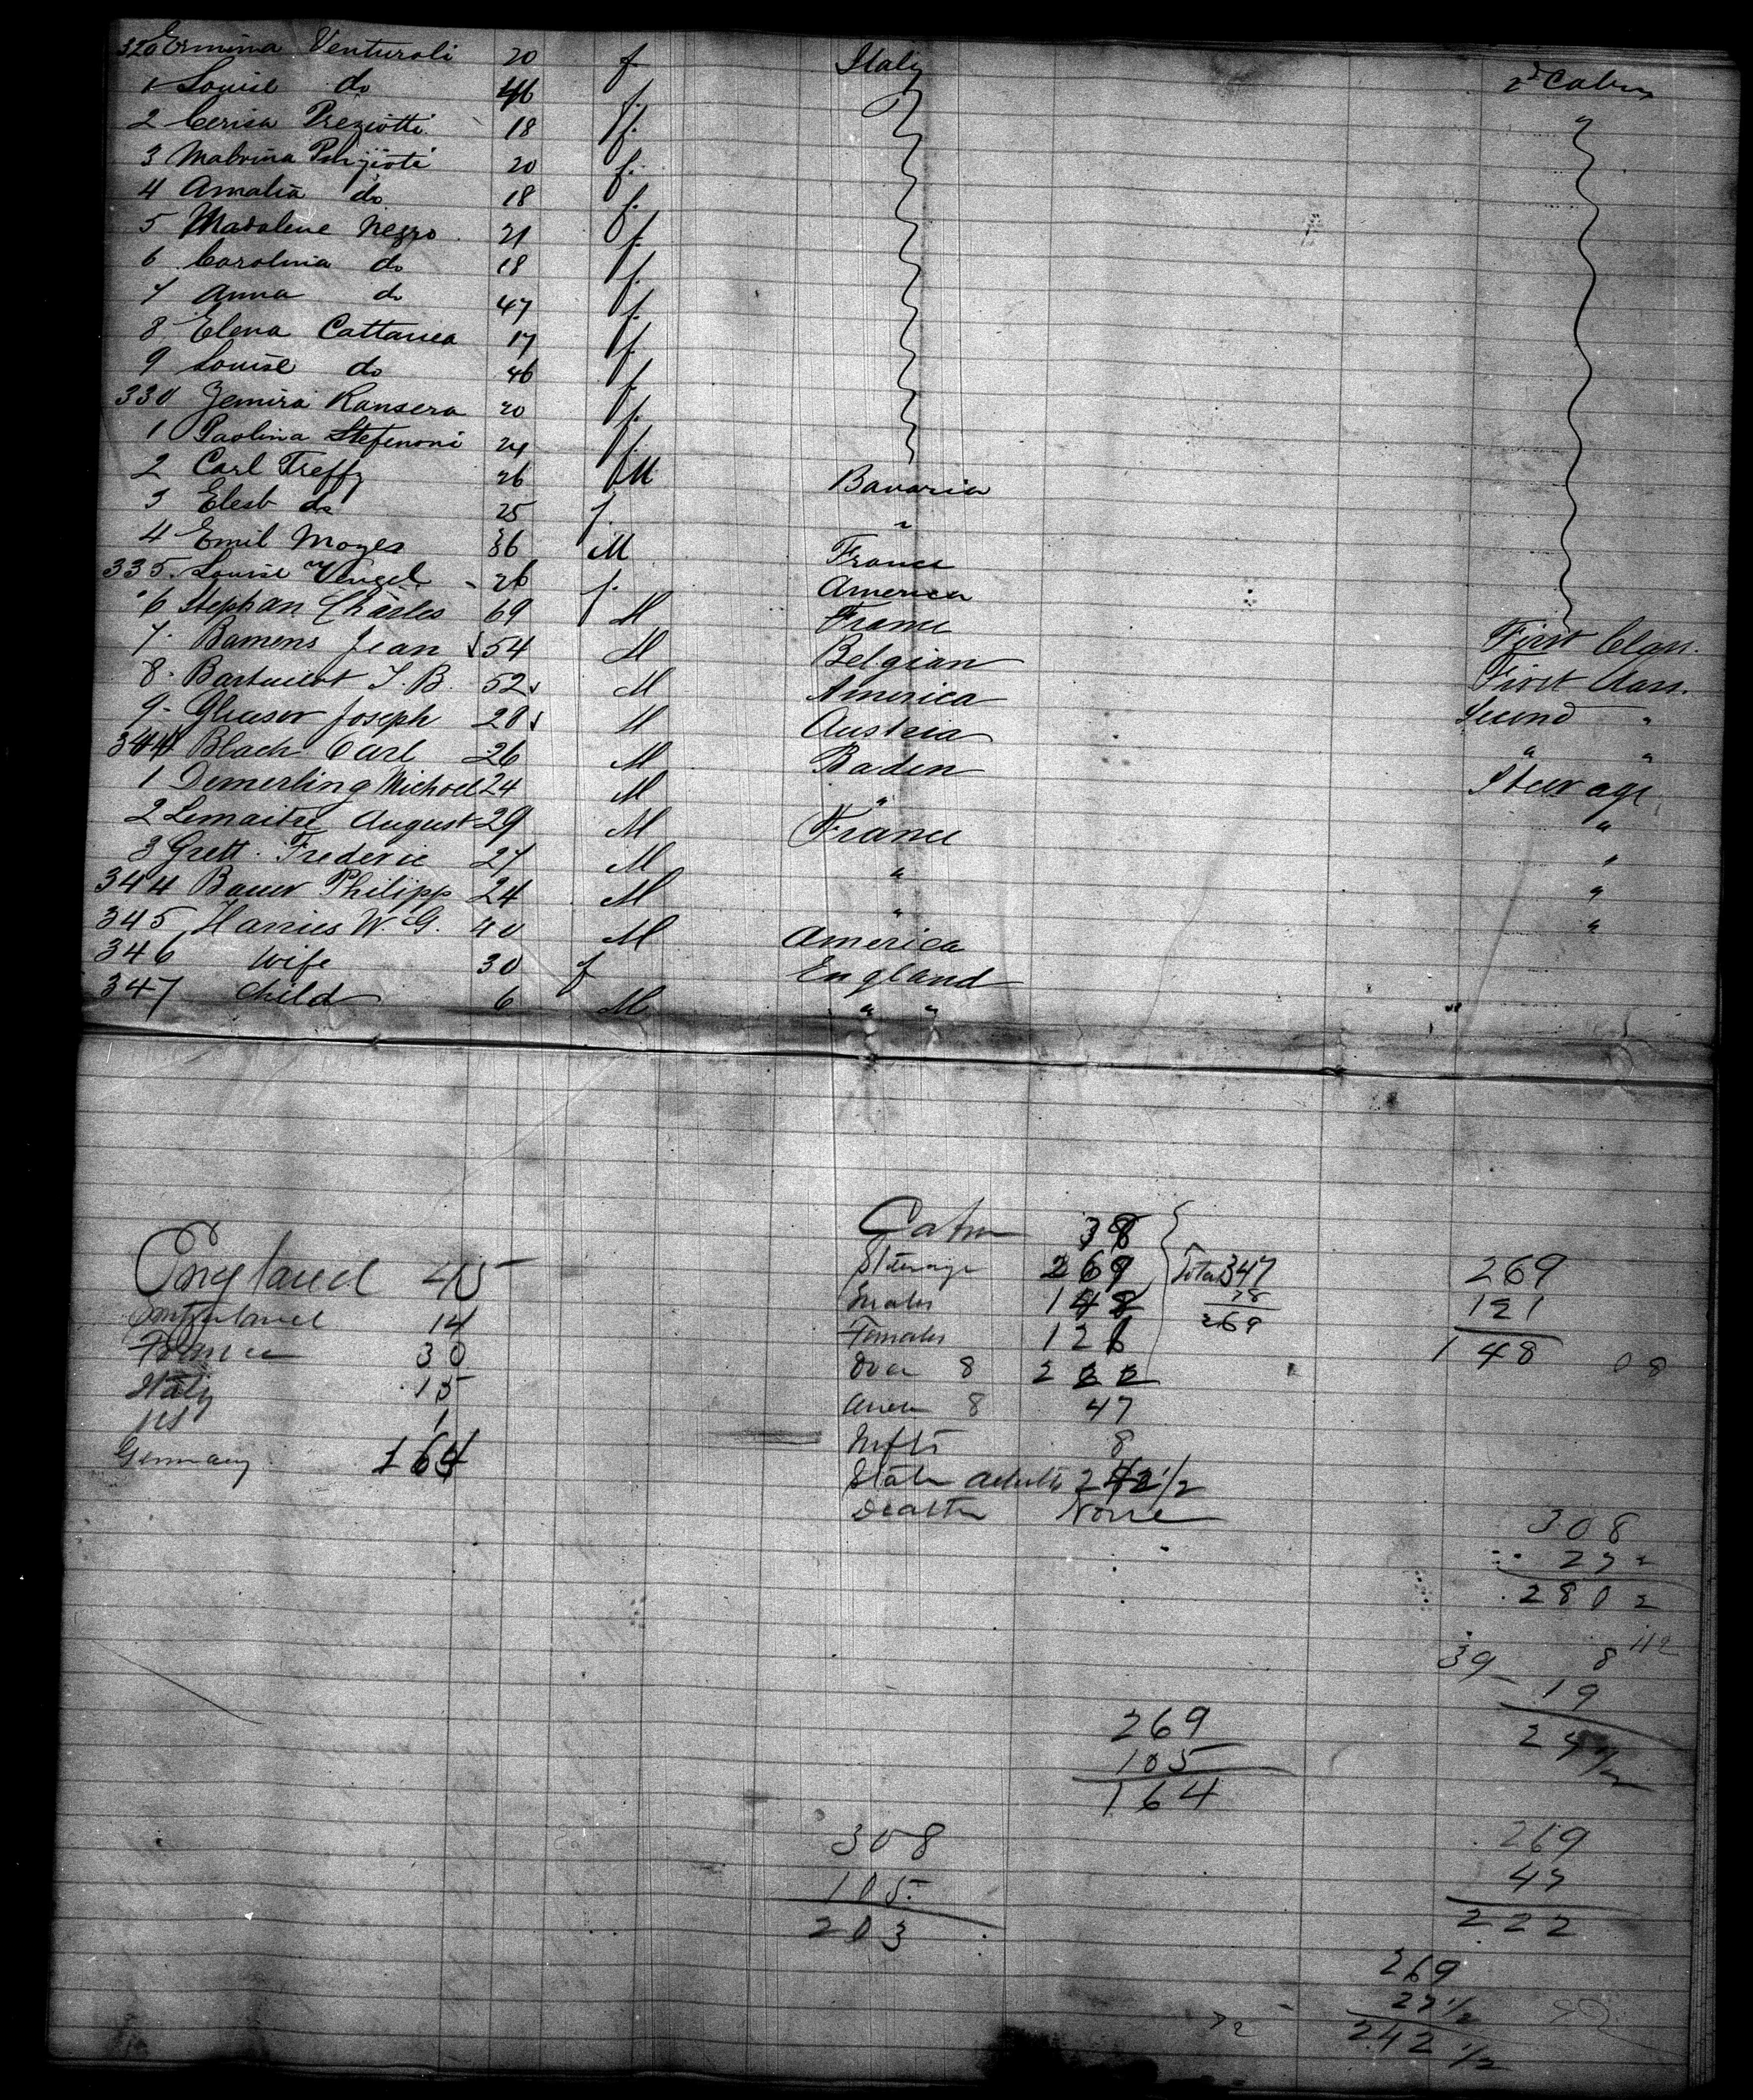 320 Ermina Venturoli 20 f Italy 2d Cabin
1 Louise do 46 f.
2 Cerisa Preziotti 18 f.
3 Malvina 20 f.
4 Amalia do 18 f.
5 Madalene Negro 21 f.
6 Carolina do 18 f.
7 Anna do 47 f.
8 Elena Cattanea 17 f.
9 Louise do 46 f.
330 Zemira Ransera 20 f.
1 Paolina Stefenoni 24 f.
2 Carl Treffz 26 M Bavaria
3 Elesb do 25 f. "
4 Emil Moyes 36 M France
335. Louise Vengel 26 f. America
6 Stephan Charles 69 M France
7. Bamens Jean 54 M Belgian First Class.
8. J. B. 52 M America First Class.
9. Gleaser Joseph 20 M Austria Second "
Blach Carl 26 M Baden " "
1 Demerling Michael 24 M " Steerage
2 Lemaitre August 29 M France "
3 Grett Frederic 27 M " "
344 Bauer Philipp 24 M " "
345 Harries W. G. 40 M America "
346 Wife 30 f England
347 Child 6 M " "
Cabin 78
England 45
Steerage 269 Total 347
269
14
Males 148
78
121
France 30
Females 121
269
148
08
Italy 15
Over 8 222
US 1
Under 8 47
Germany 164
Infts 8
Stat adults 242 1/2
Deaths None
308
27 2
280 2
39 8 1/2
19
27 1/2
269
105
164
308
105
203
269
47
222
269
27 1/2
242 1/2